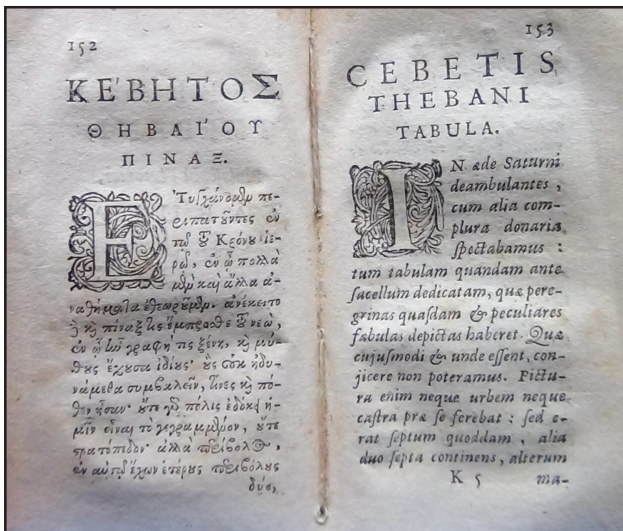 152
ΚΕ΄ΒΗΤΟΣ
ΘΗΒΑΙ΄ΟΥ
ΠΙΝΑΞ.
ἘΤυγχάνομεν πε-
ριπατοῦντες ἐν
τῷ τοῦ Κρόνου ἱε-
ρῷ, ἐν ᾧ πολλὰ
μὲν καὶ ἄλλα ἀ-
ναθήματα ἐθεωροῦμεν. ἀνέκειτο
δὲ καὶ πίναξ τις ἔμπροσθε τοῦ νεὼ,
ἐν ᾧ ἦν γραφή τις ξένη, καὶ μύ-
θους ἔχουσα ἰδίους· οὓς οὐκ ἠδυ-
νάμεθα συμβαλεῖν, τίνες καὶ πό-
θεν ἦσαν. οὔτε γὰρ πόλις ἐδόκει ἡ-
μῖν εἶναι τὸ γεγραμμένον, οὔτε
στρατόπεδον· ἀλλὰ περίβολος,
ἐν αὑτῷ ἔχων ἑτέρους περιβόλους
δύο,
153
CEBETIS
THEBANI
TABULA.
IN æde Saturni
deambulantes,
cum alia com-
plura donaria
ſpectabamus :
tum tabulam quandam ante
ſacellum dedicatam, quæ pere-
grinas quaſdam & peculiares
fabulas depictas haberet. Quæ
cujuſmodi & unde eſſent, con-
jicere non poteramus. Pictu-
ra enim neque urbem neque
caſtra præ ſe ferebat : ſed e-
rat ſeptum quoddam, alia
duo ſepta continens, alterum
K 5 ma-